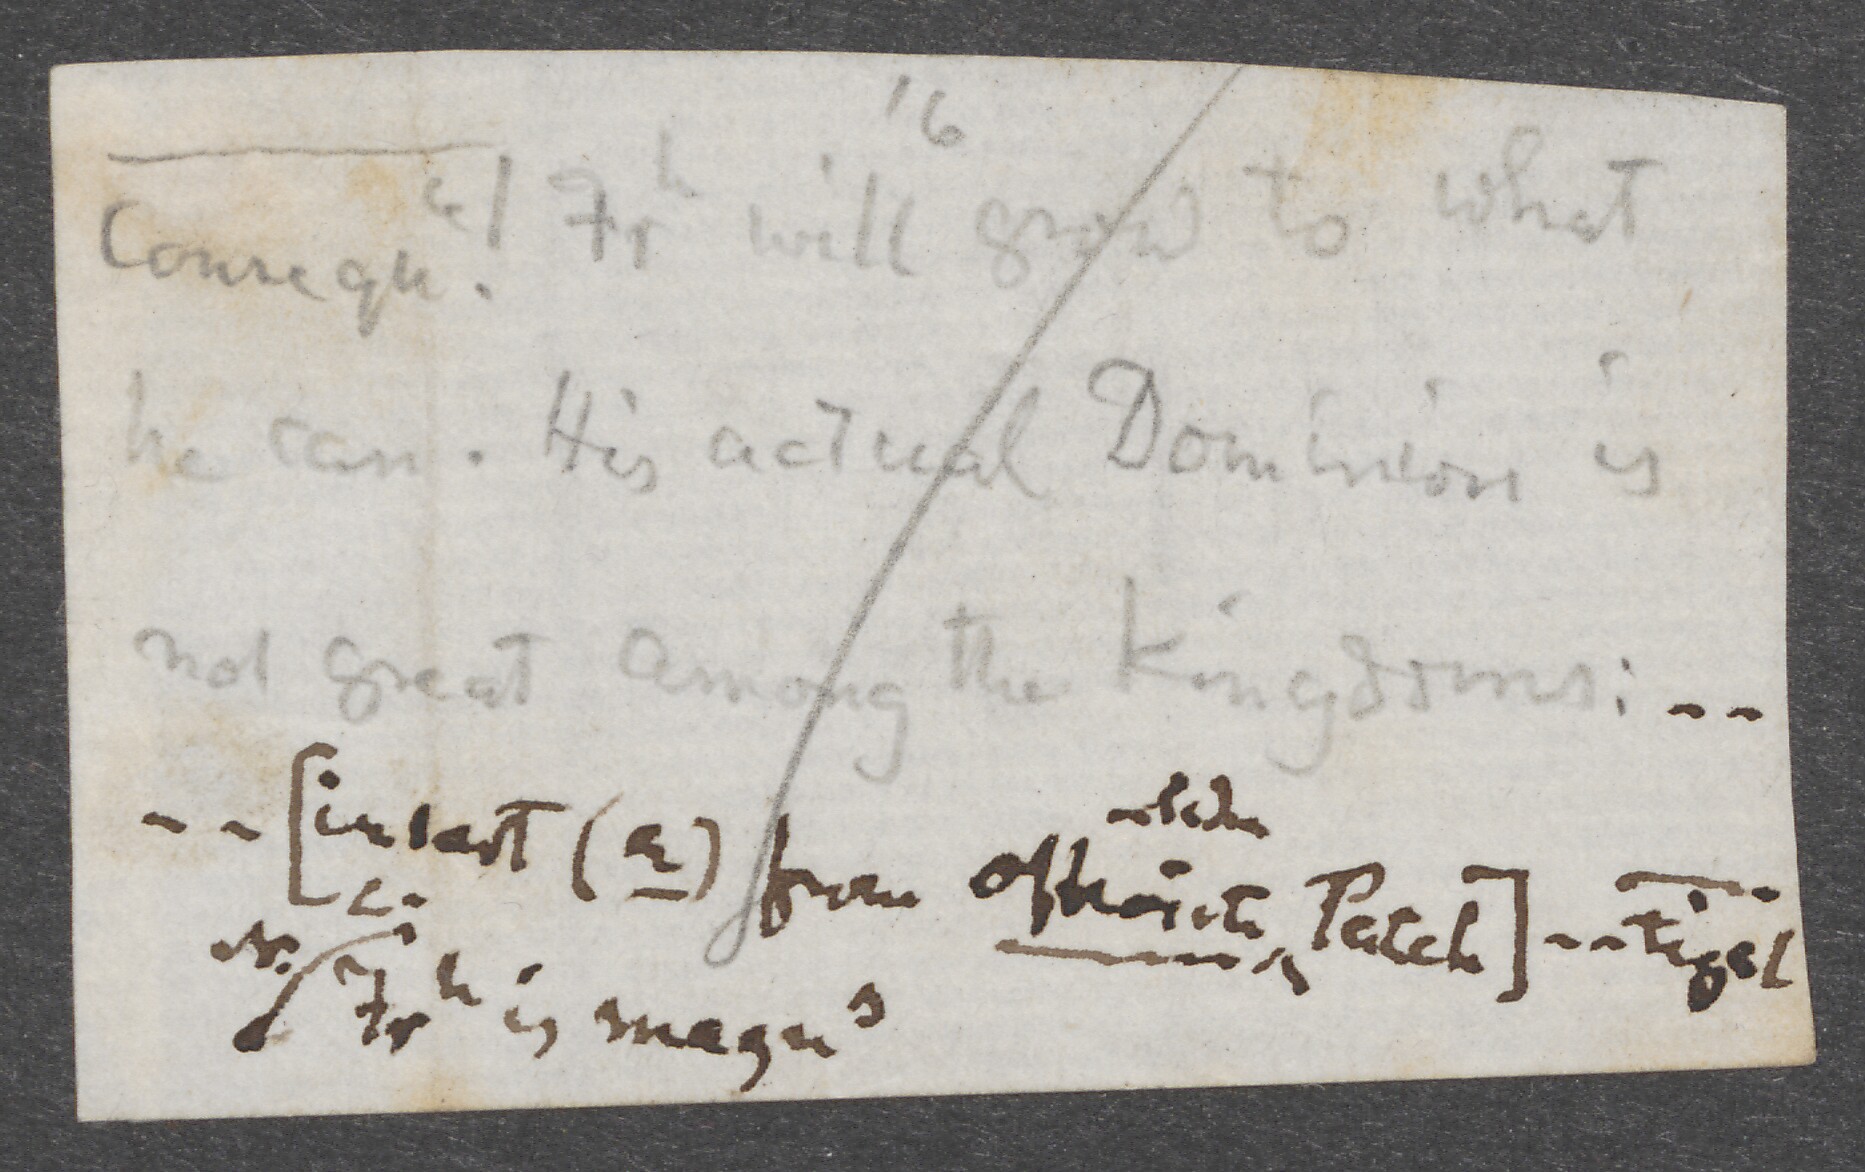 16
Consequ.ce/ Frh will grow to what
he can. His actual Dominion is
not great among the Kingdoms: --
-- [insert (a) from opposite Patch] --
N. / Frh is magns